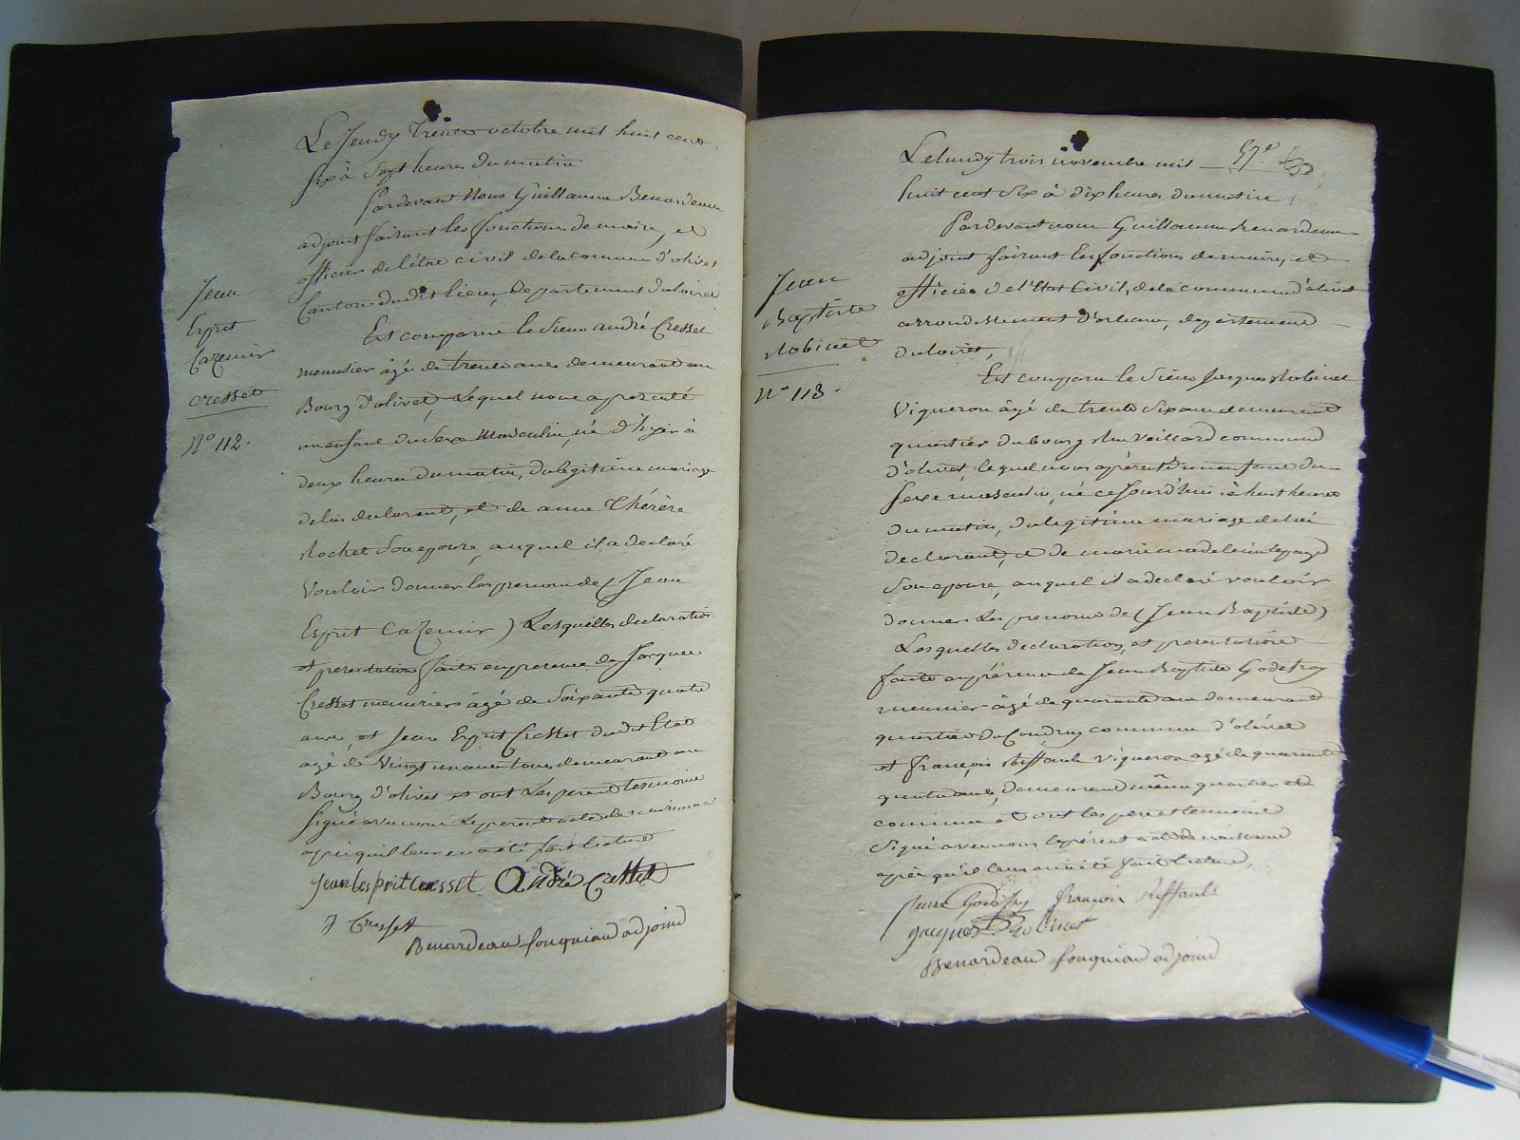 Le Jeudy Trente octobre mil huit cent
six à Sept heures du matin
Pardevant Nous Guillaume Benardeau
adjoint faisant les fonctions de maire, et
officier de l'état civil de la commune d'olivet
Canton dudit lieu, Departement du loiret
Est comparu le Sieur andré Cresset
menuisier âgé de trente ans demeurant au
Bourg d'olivet, Lequel nous a presenté
un enfant du Sexe Masculin, né d'hyer à
deux heures du matin, du legitime mariage
de lui declarant, et de anne Thérèse
Rochet Son epouse, auquel il a declaré
Vouloir donner les prenoms de (Jean
Esprit Cazemir) Lesquelles declaration
et presentation faites en presence de Jacques
Cresset menuisier âgé de Soixante quatre
ans, et Jean Esprit Cresset dudit Etat
agé de Vingt un ans tous demeurant au
Bourg d'olivet et ont les pere et temoins
Signé avec nous le present acte de naissance
après qu'il leur en a été fait lecture
Jean Esprit Cresset André Cresset
J Cresset
Benardeau fouquiau adjoind
Jean
Esprit
Cazemir
Cresset
N° 112.
Le lundy trois novembre mil 57e
huit cent Six à dix heures du matin
Pardevant nous Guillaume Benardeau
adjoint faisant les fonctions de maire, et
officier de l'Etat Civil, de la commune d'olivet
arrondissement d'orleans, departement
du loiret,
Est comparu le Sieur Jacques Robinet
Vigneron âgé de trente Six ans demeurant
quartier du bourg commune
d'olivet, lequel nous a présenté un enfant du
Sexe masculin, né ce Jourd'hui à huit heures
du matin, du legitime mariage de lui
declarant, et de marie madeleine lepage
Son epouse, auquel il a declaré vouloir
donner les prenoms de (Jean Baptiste)
Lesquelles declaration, et presentation
faite en présence de Jean Baptiste Godefroy
meunier âgé de quarante ans demeurant
quartier du Coudray commune d'olivet
et françois Riffault Vigneron agé de quarante
quatre ans, demeurant même quartier et
commune et ont les pere et temoins
Signé avec nous le présent acte de naissance
après qu'il leur en a été fait lecture,
Pierre Godefroy françois Riffault
Jacques Robinet
Benardeau fouquiau adjoind
Jean
Baptiste
Robinet
N° 113.